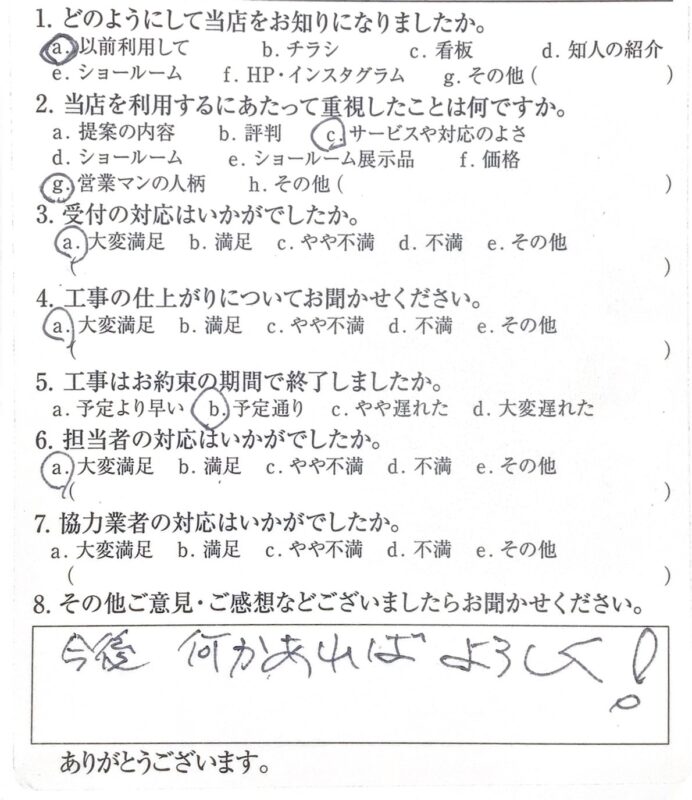 1. どのようにして当店をお知りになりましたか。
a. 以前利用して b. チラシ c. 看板 d. 知人の紹介
e. ショールーム f. HP・インスタグラム g. その他 ( )
2. 当店を利用するにあたって重視したことは何ですか。
a. 提案の内容 b. 評判 c. サービスや対応のよさ
d. ショールーム e. ショールーム展示品 f. 価格
g. 営業マンの人柄 h. その他 ( )
3. 受付の対応はいかがでしたか。
a. 大変満足 b. 満足 c. やや不満 d. 不満 e. その他
( )
4. 工事の仕上がりについてお聞かせください。
a. 大変満足 b. 満足 c. やや不満 d. 不満 e. その他
( )
5. 工事はお約束の期間で終了しましたか。
a. 予定より早い b. 予定通り c. やや遅れた d. 大変遅れた
6. 担当者の対応はいかがでしたか。
a. 大変満足 b. 満足 c. やや不満 d. 不満 e. その他
( )
7. 協力業者の対応はいかがでしたか。
a. 大変満足 b. 満足 c. やや不満 d. 不満 e. その他
( )
8. その他ご意見・ご感想などございましたらお聞かせください。
今後 何かあれば よろしく!
ありがとうございます。